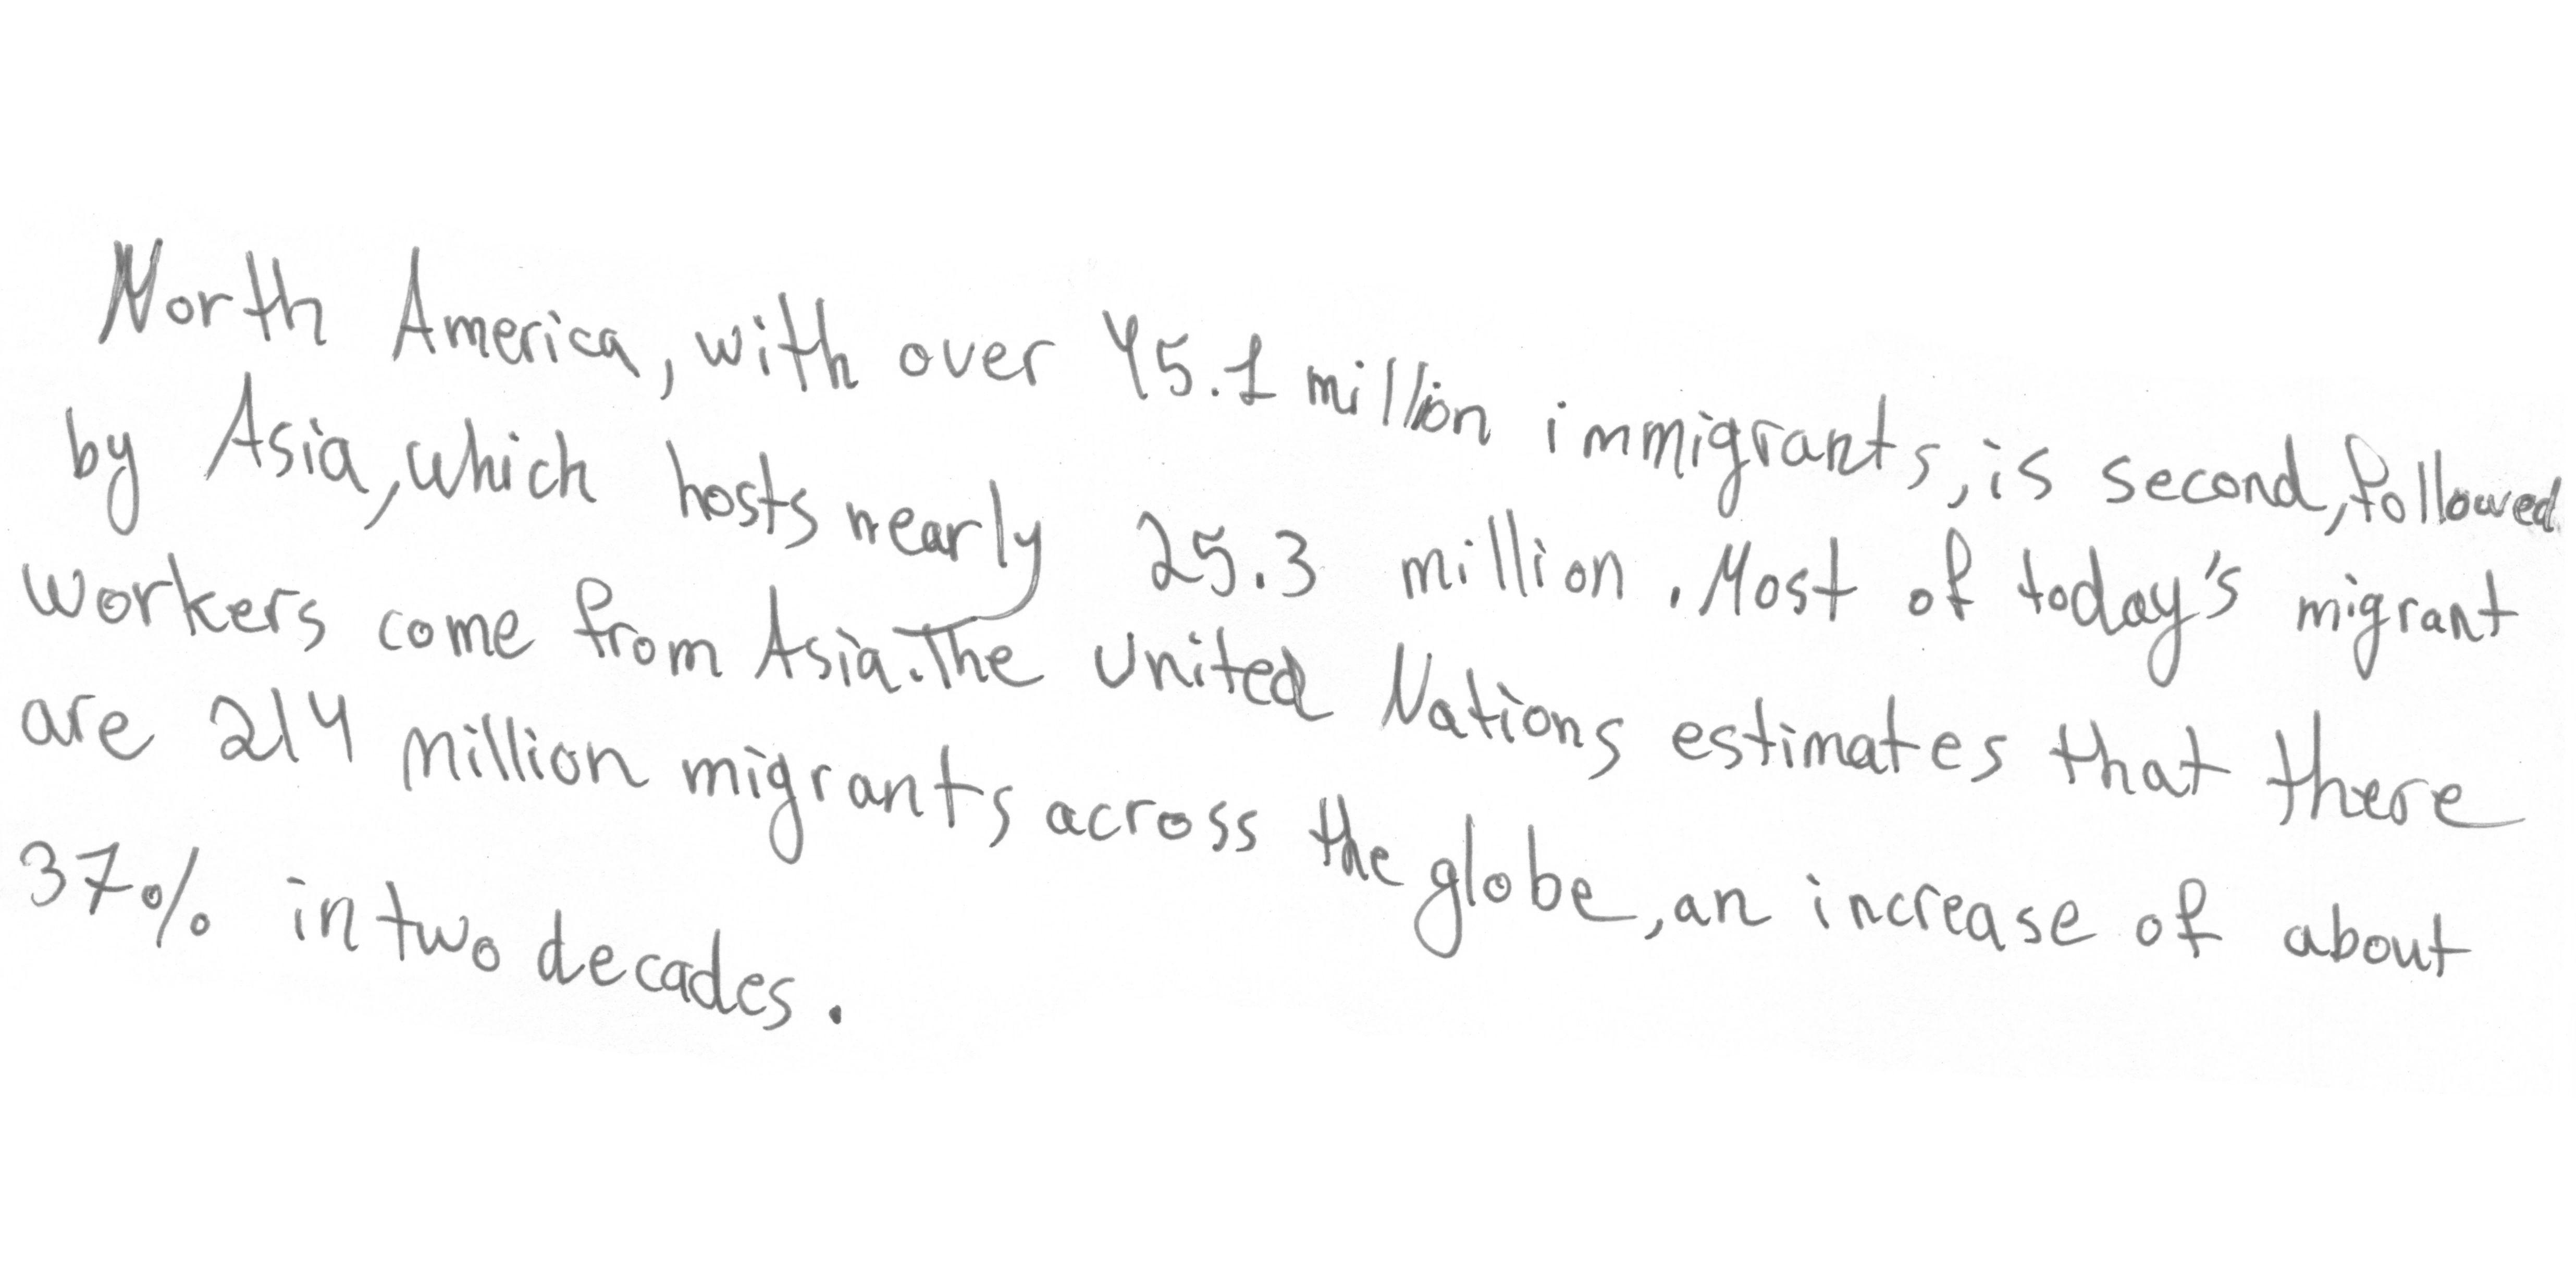 North America, with over 45.1 million immigrants, is second, followed
by Asia, which hosts nearly 25.3 million. Most of today's migrant
workers come from Asia. The United Nations estimates that there
are 214 million migrants across the globe, an increase of about
37% in two decades.